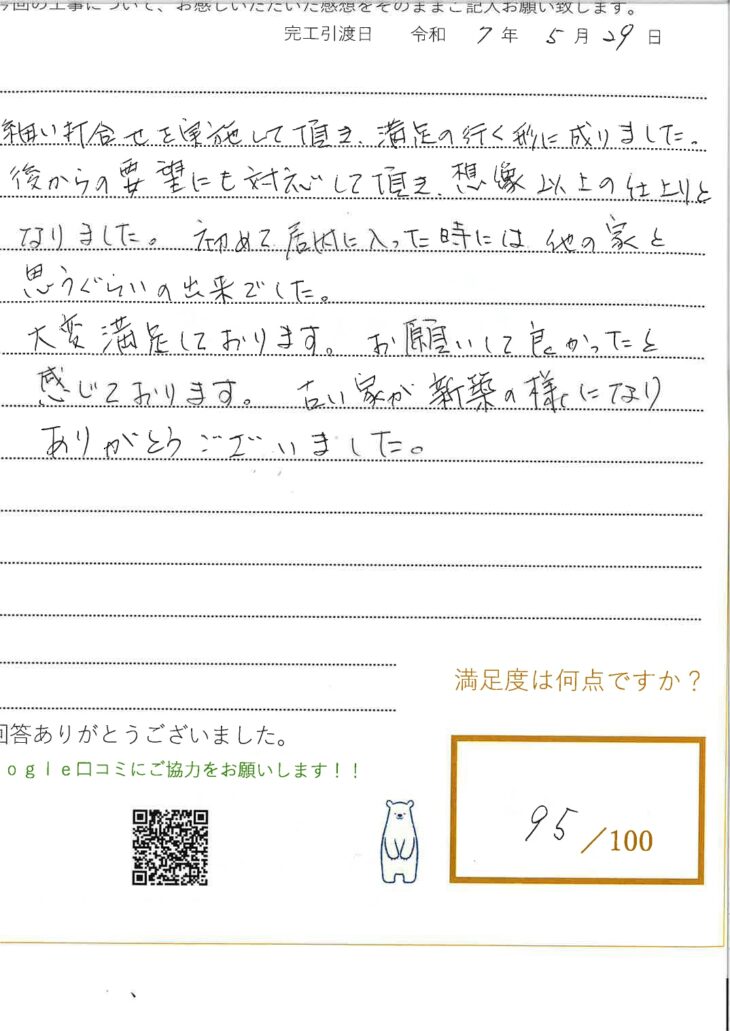 今回の工事について、お感じいただいた感想をそのままご記入お願い致します。
完工引渡日 令和 7 年 5 月 29 日
細い打合せを実施して頂き、満足の行く形に成りました。
後からの要望にも対応して頂き、想像以上の仕上りと
なりました。 初めて居内に入った時には他の家と
思うぐらいの出来でした。
大変満足しております。 お願いして良かったと
感じております。 古い家が新築の様になり
ありがとうございました。
満足度は何点ですか？
回答ありがとうございました。
ogle口コミにご協力をお願いします！！
95/100